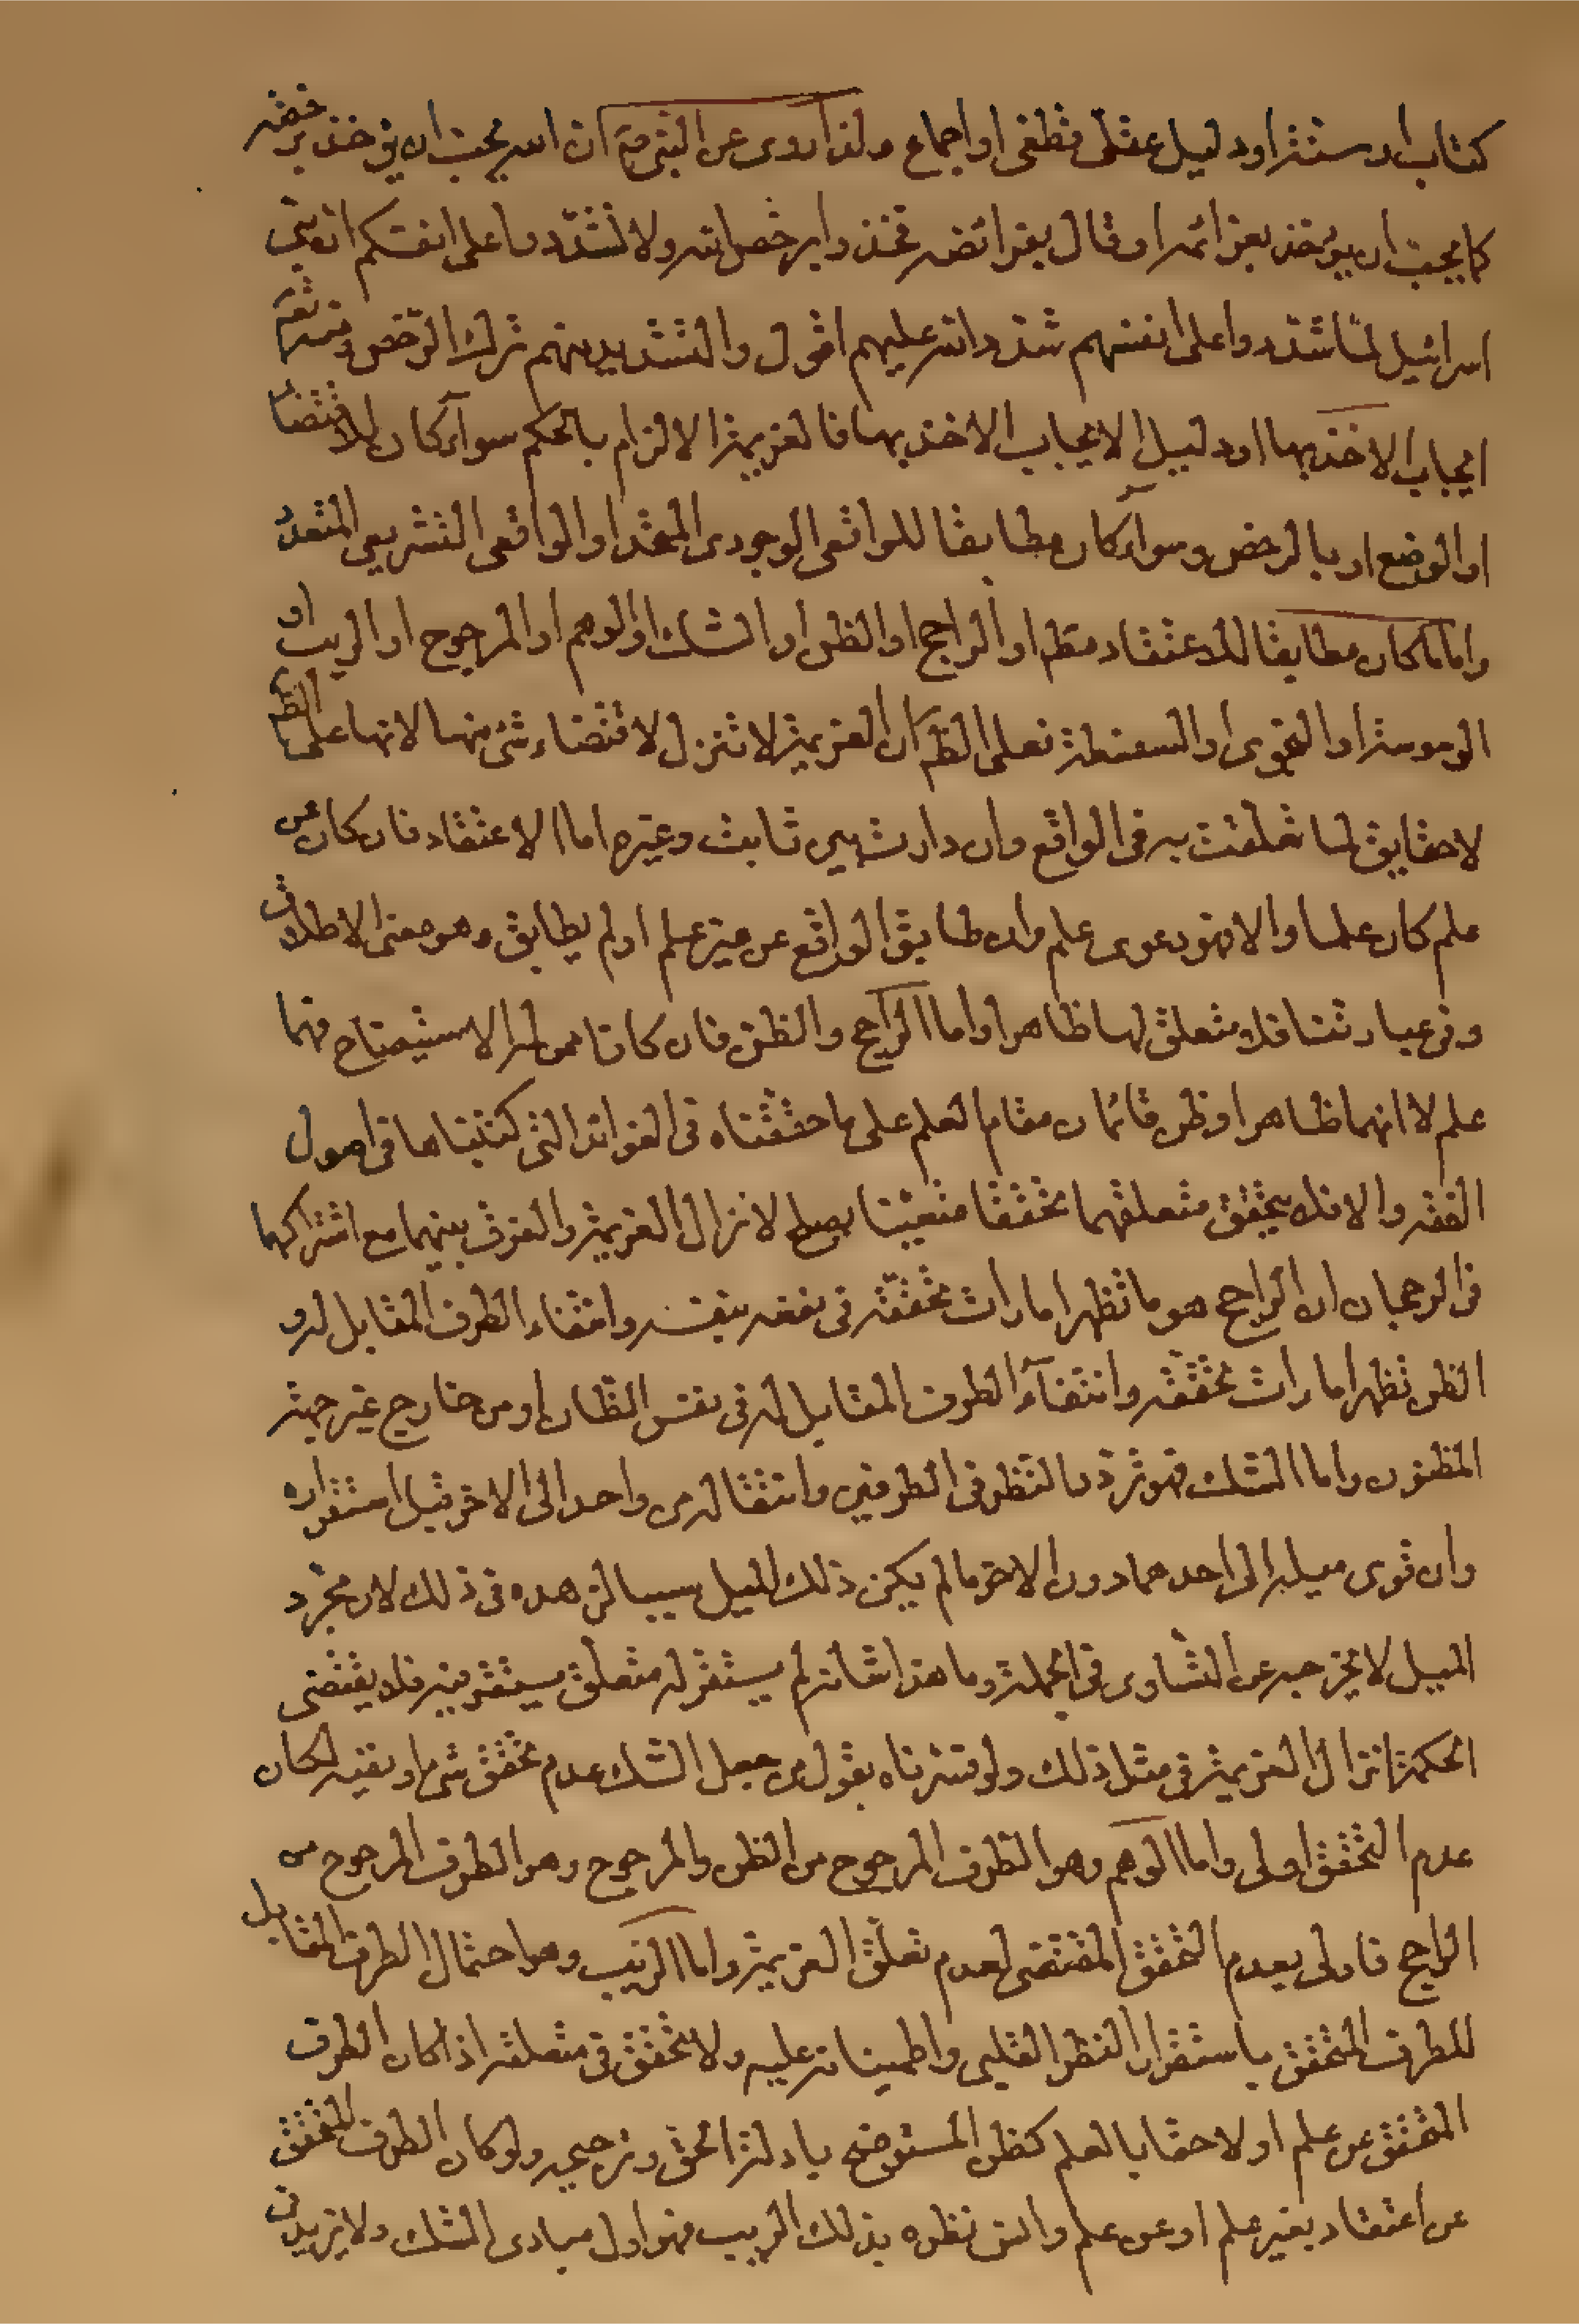 كتاب او سنة او دليل عقلى قطعى او اجماع ولذا روى عن النبى ص ان الله يحب ان يؤخذ برخصه
كما يحب ان يؤخذ بعزائمه او قال بفرائضه فخذوا برخص الله ولا تشددوا على انفسكم ان بنى
اسرائيل لما شددوا على انفسهم شدد الله عليهم اقول والتشديد منهم ترك الرخص
ايجاب الاخذ بها او دليل الايجاب الاخذ بها فالعزيمة الالزام بالحكم سواء كان للاقتضاء
او الوضع او بالرخص وسواء كان مطابقا للواقعى الوجودى او الواقعى التشريعى
واما ما كان مطابقا للاعتقاد مقطم او الراجح او الظن او الشك او الوهم او المرجوح او الريب او
الوسوسة او النجوى او السفسطة فعلى الظم ان العزيمة لا تنزل لاقتضاء شئ منها لانها على الظم
لاحقايق لما تعلقت به فى الواقع وان دارت بين ثابت وغيره اما الاعتقاد فان كان عن
علم كان علما والا فهو دعوى علم وان طابق الواقع عن غير علم او لم يطابق وهو معنى الاطلاق
وفى عبارتنا فلا متعلق لها ظاهرا واما الراجح والظن فان كانا ممن له الاستيضاح فهما
علم لا انهما ظاهرا وظن قائمان مقام العلم على ما حققناه فى الفوائد التى كتبناها فى اصول
الفقه والا فلا يتحقق متعلقهما تحققا متعينا يصلح لانزال العزيمة والفرق بينهما مع اشتراكهما
فى الرجحان ان الراجح هو ما تظهر امارات تحققه فى نفسه بنفسه وانتفاء الطرف المقابل له و
الظن تظهر امارات تحققه وانتفاء الطرف المقابل له فى نفس الظان او من خارج غير جهة
المظنون واما الشك فهو تردد النظر فى الطرفين وانتقاله من واحد الى الاخر قبل استقراره
وان قوى ميله الى احدهما دون الاخر ما لم يكن ذلك الميل سببا لزهده فى ذلك لان مجرد
الميل لا يخرجه عن التساوى فى الجملة وما هذا شانه لم يستقر له متعلق يستقر فيه فلا يقتضى
الحكمة انزال العزيمة فى مثل ذلك ولو فسرناه بقول من جعل الشك عدم تحقق شئ او نفيه لكان
عدم التحقق اولى واما الوهم وهو الطرف المرجوح من الظن والمرجوح وهو الطرف المرجوح من
الراجح فاولى بعدم التحقق المقتضى لعدم تعلق العزيمة واما الريب وهو احتمال الطرف المقابل
للطرف المتحقق باستقرار النظر القلبى واطمينانه عليه ولا يتحقق فى متعلقه اذا كان الطرف
المتحقق عن علم او لاحقا بالعلم كظن المستوضح بادلة الحق وترجيحه ولو كان الطرف المتحقق
عن اعتقاد بغير علم او عن علم والتف نظره بذلك الريب فهو اول مبادى الشك ولا يزيد